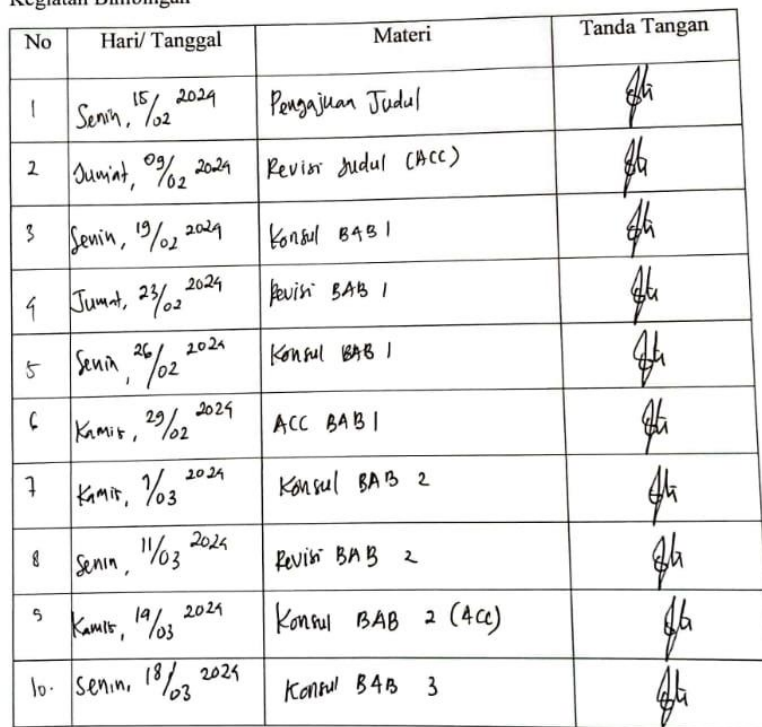 Kegiatan Bimbingan
No Hari/ Tanggal Materi Tanda Tangan
1 Senin, 15/02 2024 Pengajuan Judul
2 Jumat, 09/02 2024 Revisi Judul (ACC)
3 Senin, 19/02 2024 Konsul BAB 1
4 Jumat, 23/02 2024 Revisi BAB 1
5 Senin, 26/02 2024 Konsul BAB 1
6 Kamis, 29/02 2024 ACC BAB 1
7 Kamis, 7/03 2024 Konsul BAB 2
8 Senin, 11/03 2024 Revisi BAB 2
9 Kamis, 14/03 2024 Konsul BAB 2 (ACC)
10. Senin, 18/03 2024 Konsul BAB 3